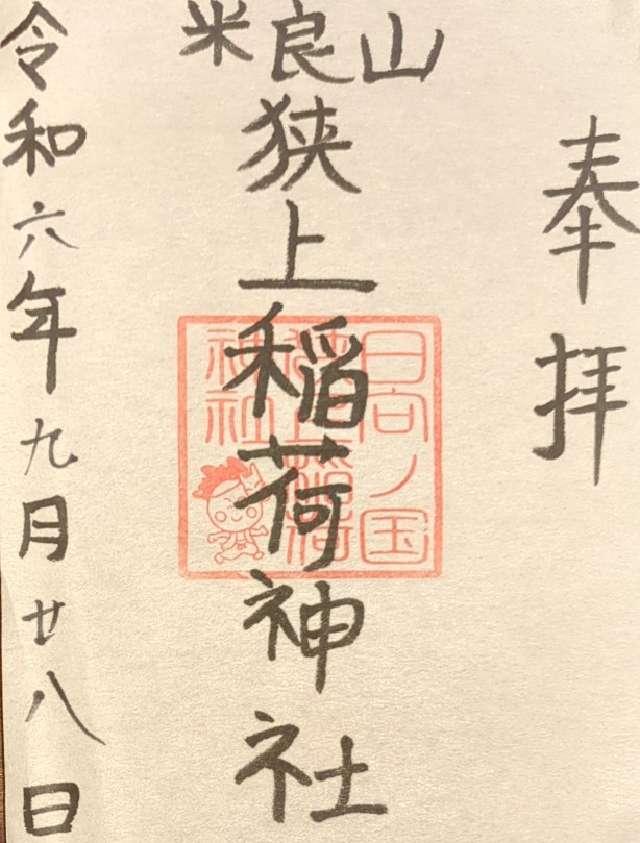 奉拝
米良山
狭上稲荷神社
日向ノ国
狭上稲荷
神社
令和六年九月廿八日